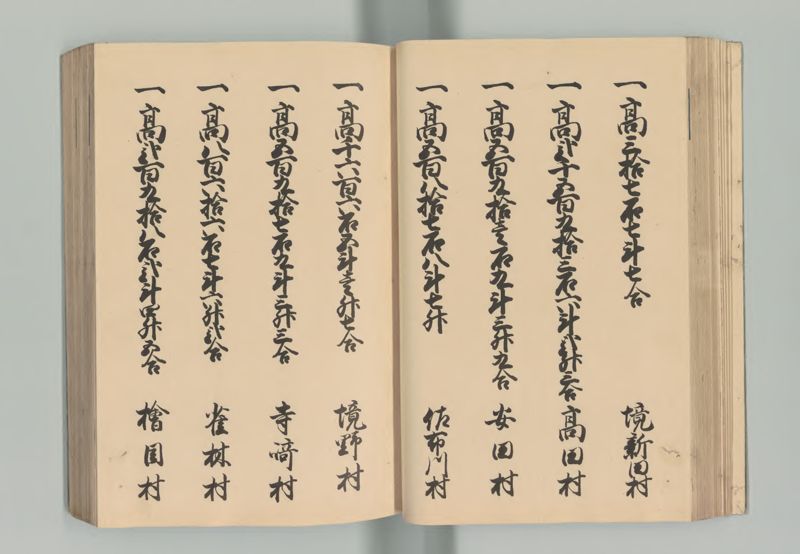 一高三拾七石七斗七合 境新田村
一高弐千五百九拾三石六斗弐升三合 高田村
一高五百九拾壱石九斗三升九合 安田村
一高五百八拾七石八斗七升 佐布川村
一高千六百六石五斗壱升七合 境野村
一高五百九拾七石九斗三升三合 寺崎村
一高八百六拾六石七斗六升弐合 雀林村
一高弐百九拾八石弐斗四升五合 檜目村